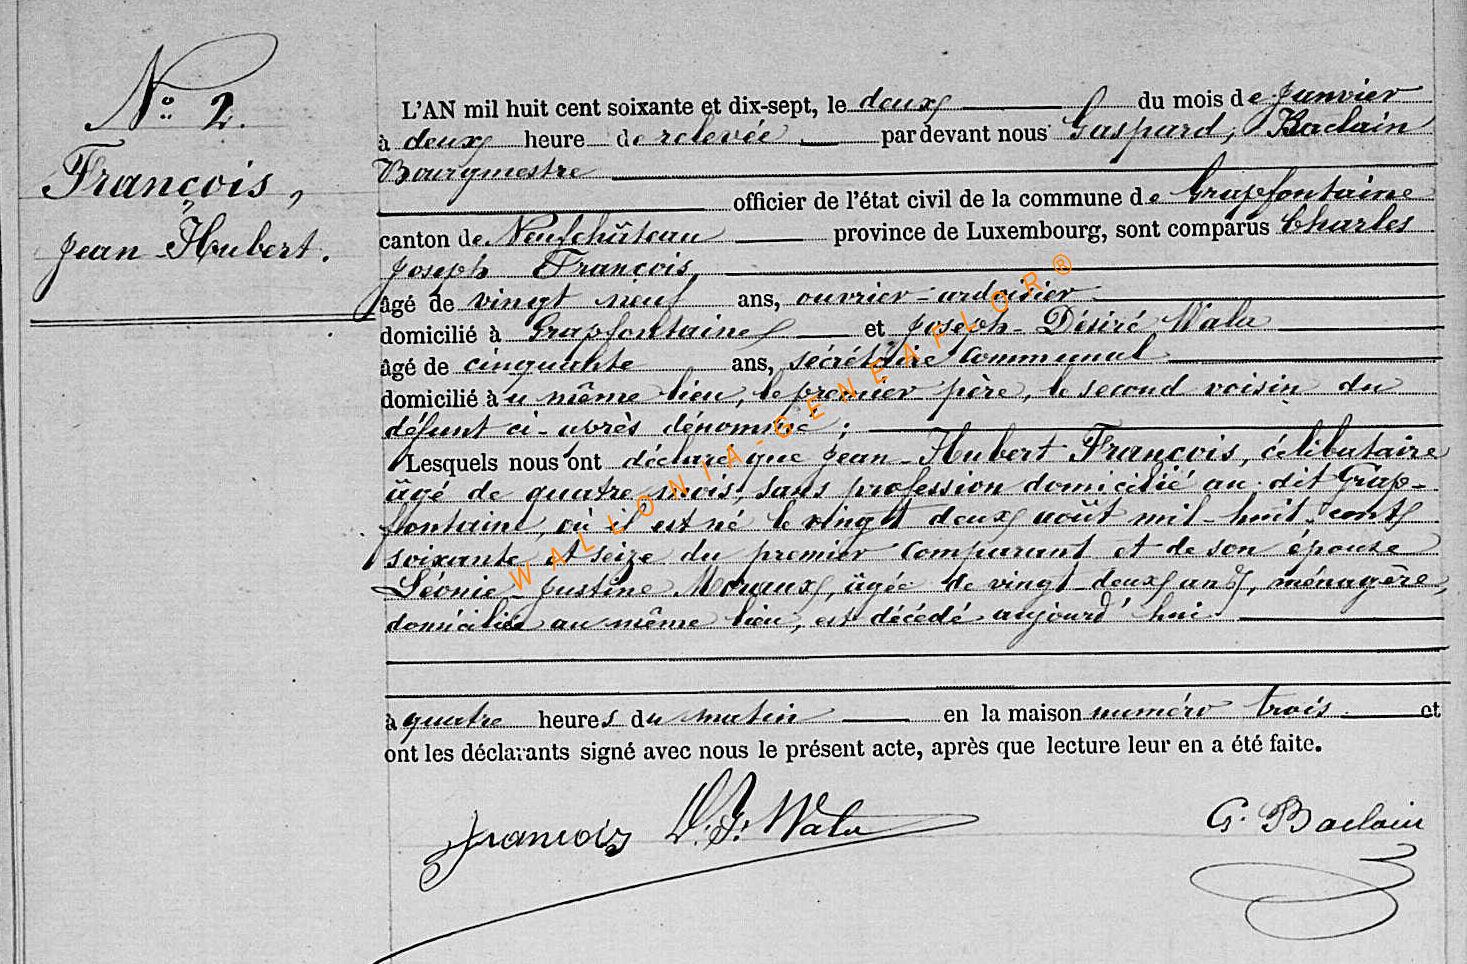 N° 2.
François,
Jean Hubert.
L'AN mil huit cent soixante et dix-sept, le deux du mois de Janvier
à deux heure de relevée par devant nous Gaspard, Baclain
Bourgmestre
officier de l'état civil de la commune de Grapfontaine
canton de Neufchâteau province de Luxembourg, sont comparus Charles
Joseph François,
âgé de vingt neuf ans, ouvrier-ardoisier
domicilié à Grapfontaine et Joseph-Désiré Wala
âgé de cinquante ans, secrétaire communal
domicilié au même lieu, le premier père, le second voisin du
défunt ci-après dénommé;
Lesquels nous ont déclaré que Jean-Hubert François, célibataire
âgé de quatre mois, sans profession domicilié au dit Grap-
fontaine, où il est né le vingt deux août mil-huit-cent
soixante et seize du premier comparant et de son épouse
Léonie-Justine Moraux, âgée de vingt-deux ans, ménagère,
domiciliée au même lieu, est décédé aujourd'hui
à quatre heures du matin en la maison numéro trois et
ont les déclarants signé avec nous le présent acte, après que lecture leur en a été faite.
François D. J. Wala G. Baclain
WALLONIA-GENEAFLOR®